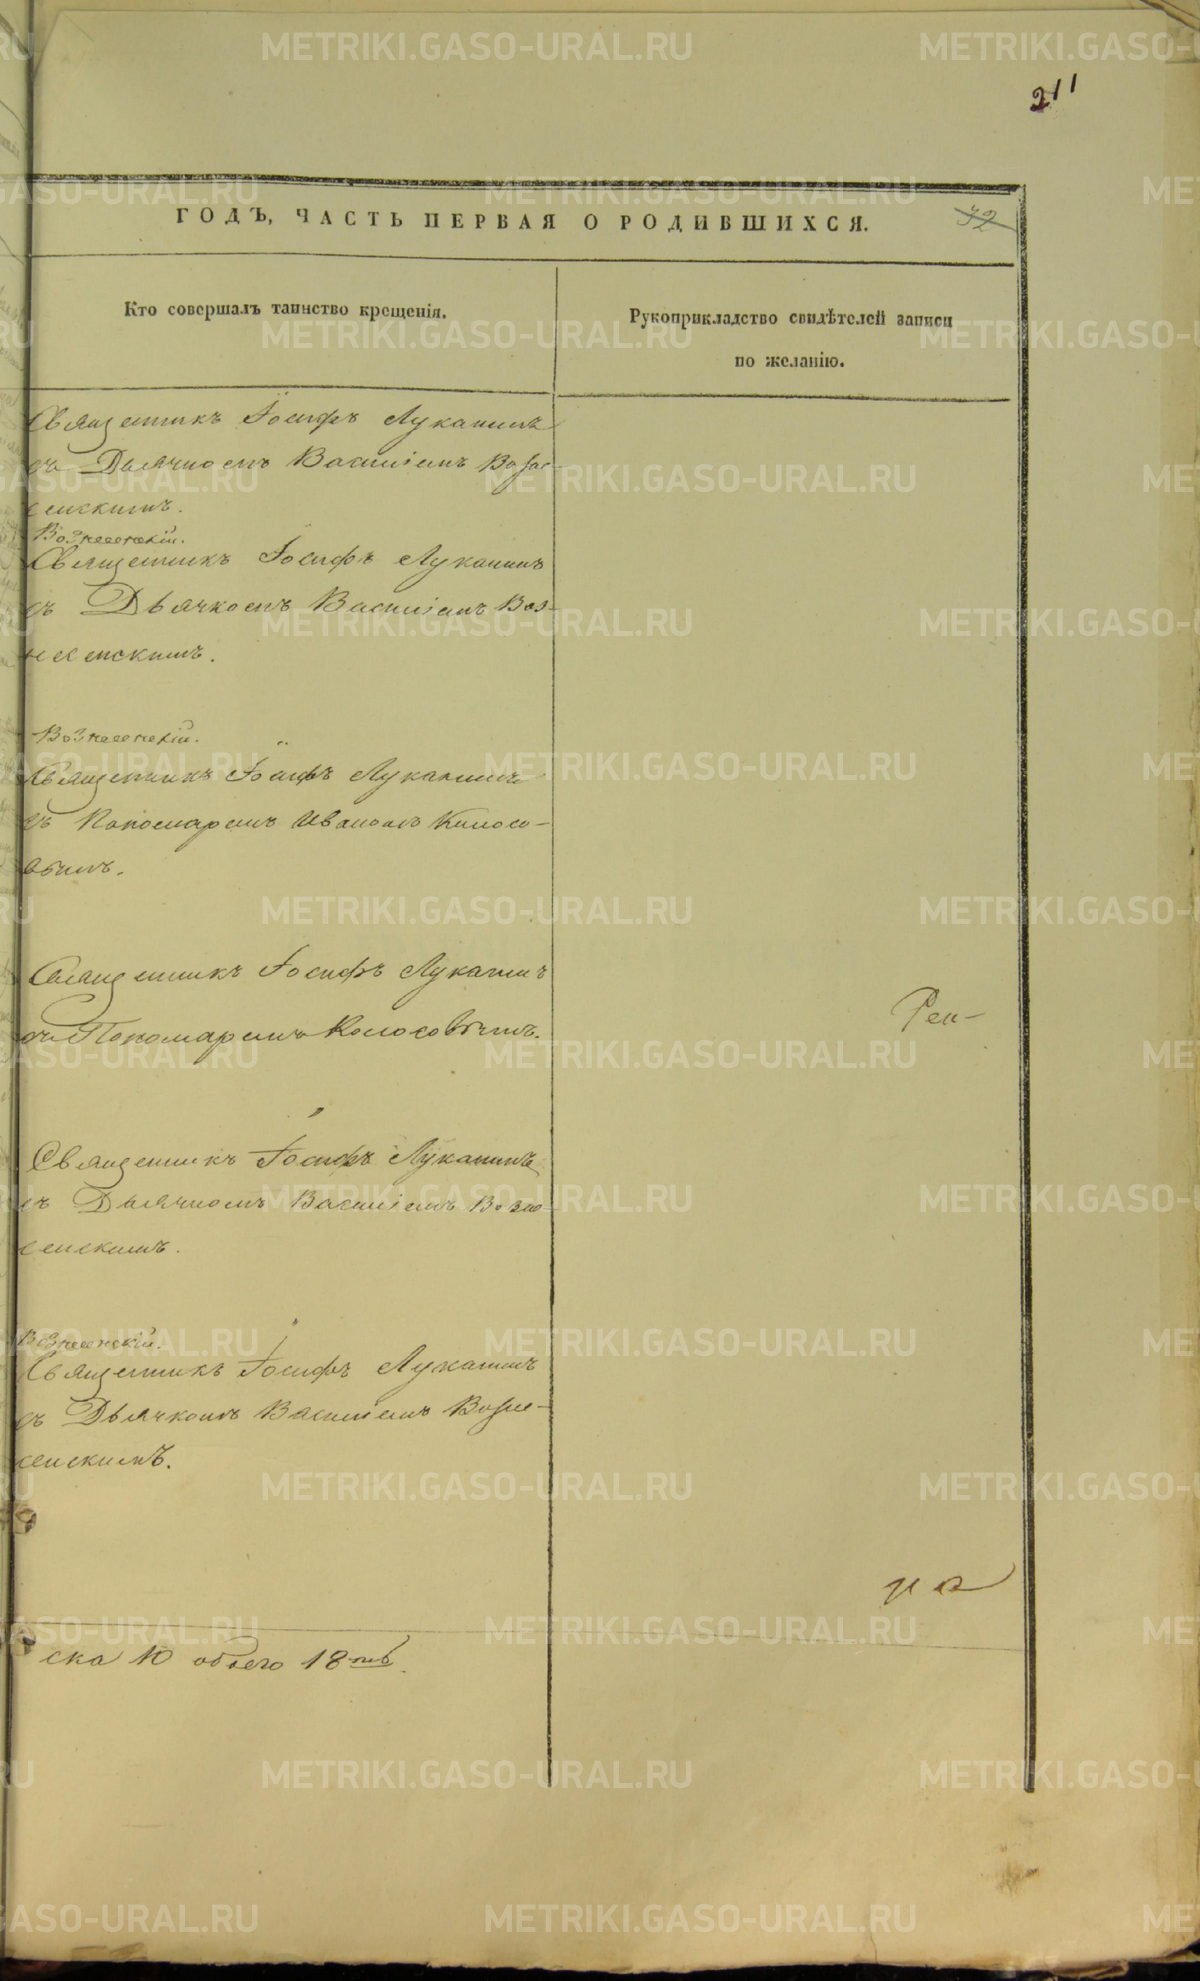 211
ГОДЪ, ЧАСТЬ ПЕРВАЯ О РОДИВШИХСЯ.
32
Кто совершалъ таинство крещенія.
Рукоприкладство свидѣтелей записи
по желанію.
Священникъ Іосифъ Луканинъ
съ Дьячкомъ Василіемъ Возне-
сенскимъ.
Вознесенскій.
Священникъ Іосифъ Луканинъ
съ Дьячкомъ Василіемъ Воз-
несенскимъ.
Вознесенскій.
Священникъ Іосифъ Луканинъ
съ Пономаремъ Иваномъ Колосо-
вымъ.
Священникъ Іосифъ Луканинъ
съ Пономаремъ Колосовымъ.
Священникъ Іосифъ Луканинъ
съ Дьячкомъ Василіемъ Возне-
сенскимъ.
Вознесенскій.
Священникъ Іосифъ Луканинъ
съ Дьячкомъ Василіемъ Возне-
сенскимъ.
ска 10 обоего 18ть
METRIKI.GASO-URAL.RU